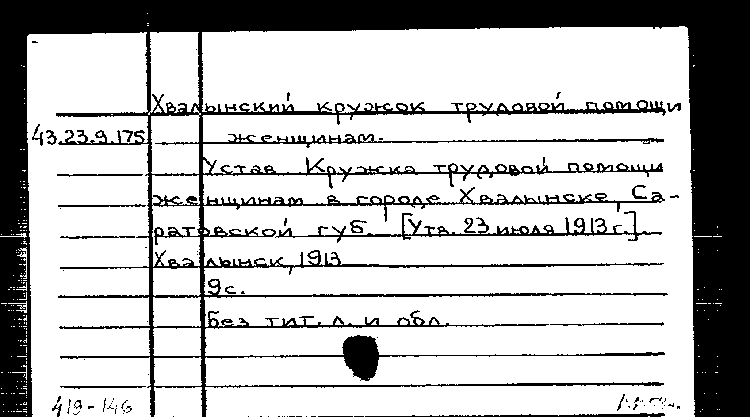 Хвалынский кружок трудовой помощи
43.23.9.175 женщинам.
Устав Кружка трудовой помощи
женщинам в городе Хвалынске, Са-
ратовской губ. [Утв. 23 июля 1913 г.].
Хвалынск, 1913
9с.
Без тит. л. и обл.
419-146